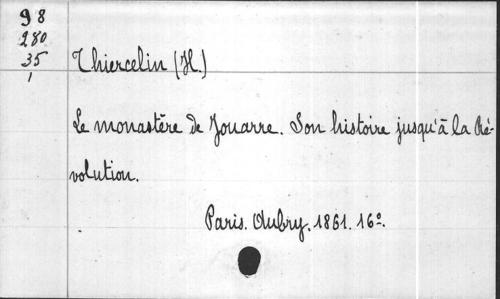 98
280
35
1
Thiercelin (H.)
Le monastère de Jouarre. Son histoire jusqu'à la Ré-
volution.
Paris. Aubry. 1861. 16º.